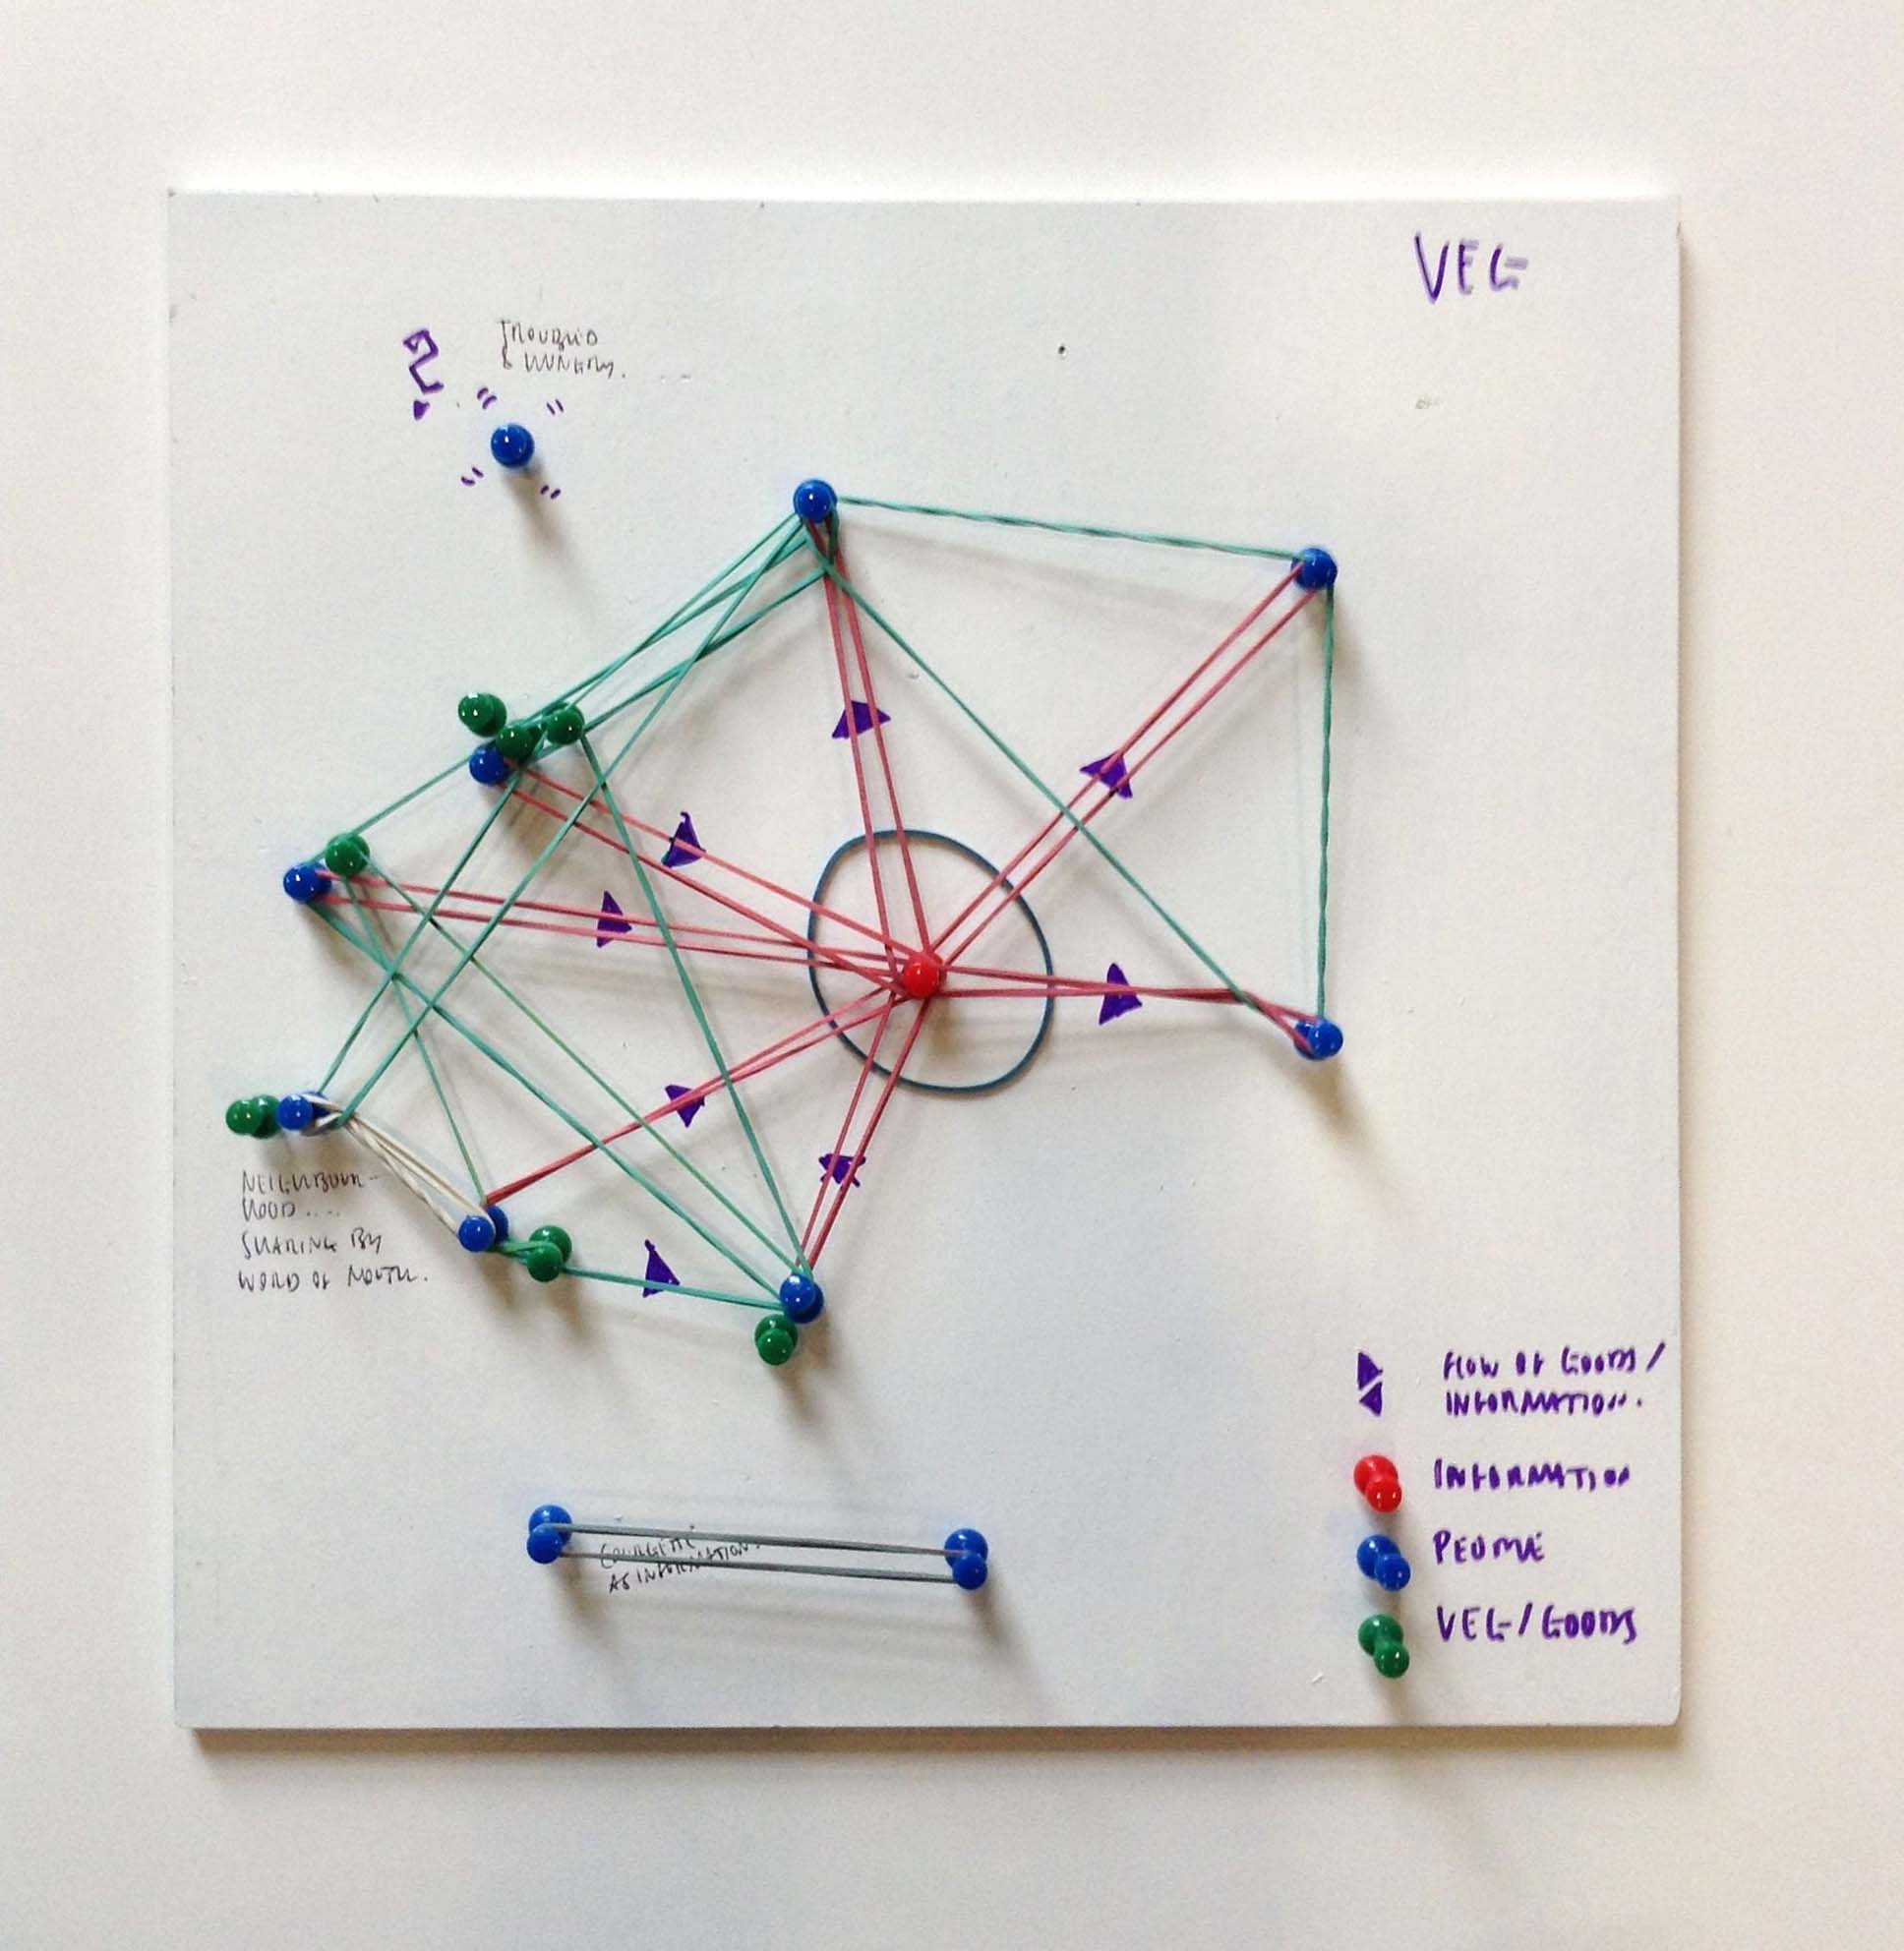 VEG
?
TROUBLED
& HUNGRY.
NEIGHBOUR-
HOOD....
SHARING BY
WORD OF MOUTH.
FLOW OF GOODS/
INFORMATION.
INFORMATION
PEOPLE
VEG/GOODS
COURGETTE
AS INFORMATION.